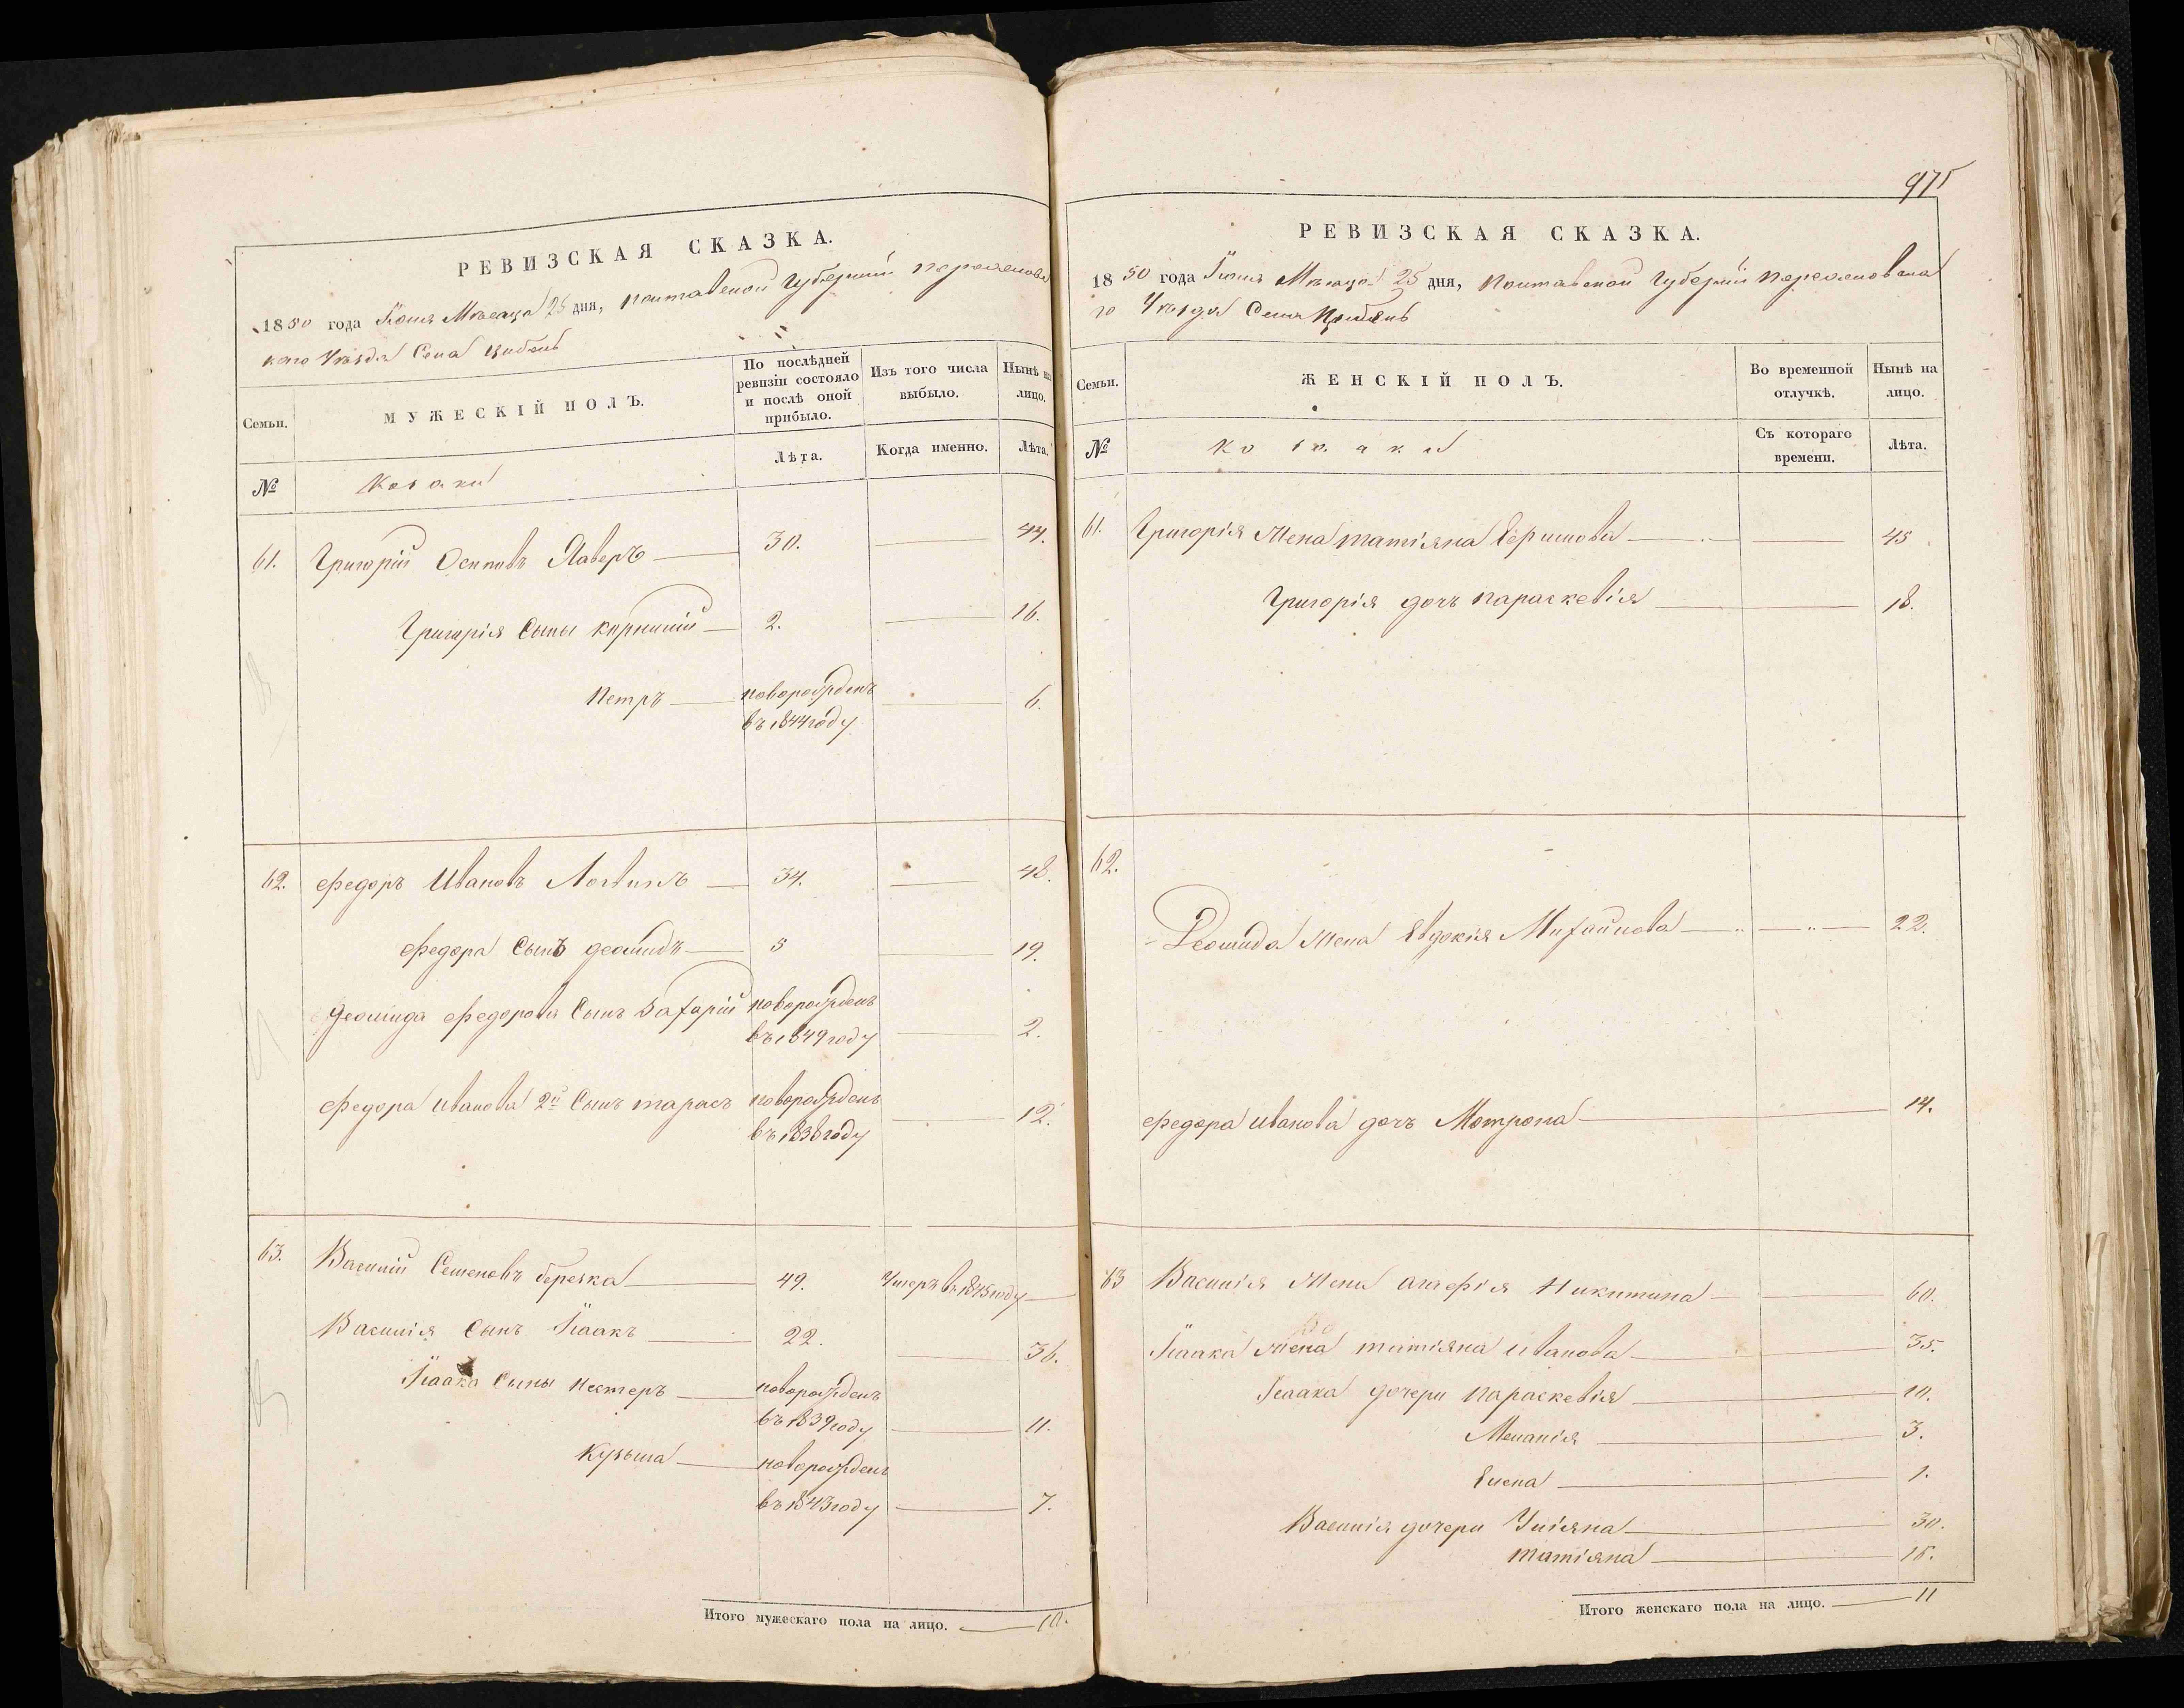 РЕВИЗСКАЯ СКАЗКА.
1850 года Іюня Мѣсяца 25 дня, Полтавской Губерніи Переясловс
каго Уѣзда Села Цибель
Семьи.
МУЖЕСКІЙ ПОЛЪ.
По послѣдней ревизіи состояло и послѣ оной прибыло.
Изъ того числа выбыло.
Нынѣ на лицо.
№
Козаки
Лѣта.
Когда именно.
Лѣта.
61. Григорій Осиповъ Лаверъ 30. 44.
Григорія Сыны Корнилій 2. 16.
Петръ новорожденъ въ 1844 году 6.
62. Федоръ Ивановъ Логвинъ 34. 48.
Федора Сынъ Деомидъ 5 19.
Деомида Федорова Сынъ Захарій новорожденъ въ 1849 году 2.
Федора Иванова 2й Сынъ Тарасъ новорожденъ въ 1838 году 12.
63. Василій Семеновъ Березка 49. Умеръ въ 1845 году
Василія Сынъ Ісаакъ 22. 36.
Ісаака Сыны Нестеръ новорожденъ въ 1839 году 11.
Кузьма новорожденъ въ 1843 году 7.
Итого мужескаго пола на лицо. 10.
975
РЕВИЗСКАЯ СКАЗКА.
1850 года Іюня Мѣсяца 25 дня, Полтавской Губерніи Переясловска
го Уѣзда Села Цибель
Семьи.
ЖЕНСКІЙ ПОЛЪ.
Во временной отлучкѣ.
Нынѣ на лицо.
№
Козаки
Съ котораго времени.
Лѣта.
61. Григорія Жена Татіяна Ефимова 45
Григорія дочь Параскевія 18.
62.
Деомида Жена Евдокія Михайлова 22.
Федора Иванова дочь Мотрона 14.
63 Василія Жена Агафія Никитина 60.
Ісаака Жена Татіяна Иванова 35.
Ісаака дочери Параскевія 10.
Меланія 3.
Елена 1.
Василія дочери Уліяна 30.
Татіяна 18.
Итого женскаго пола на лицо. 11